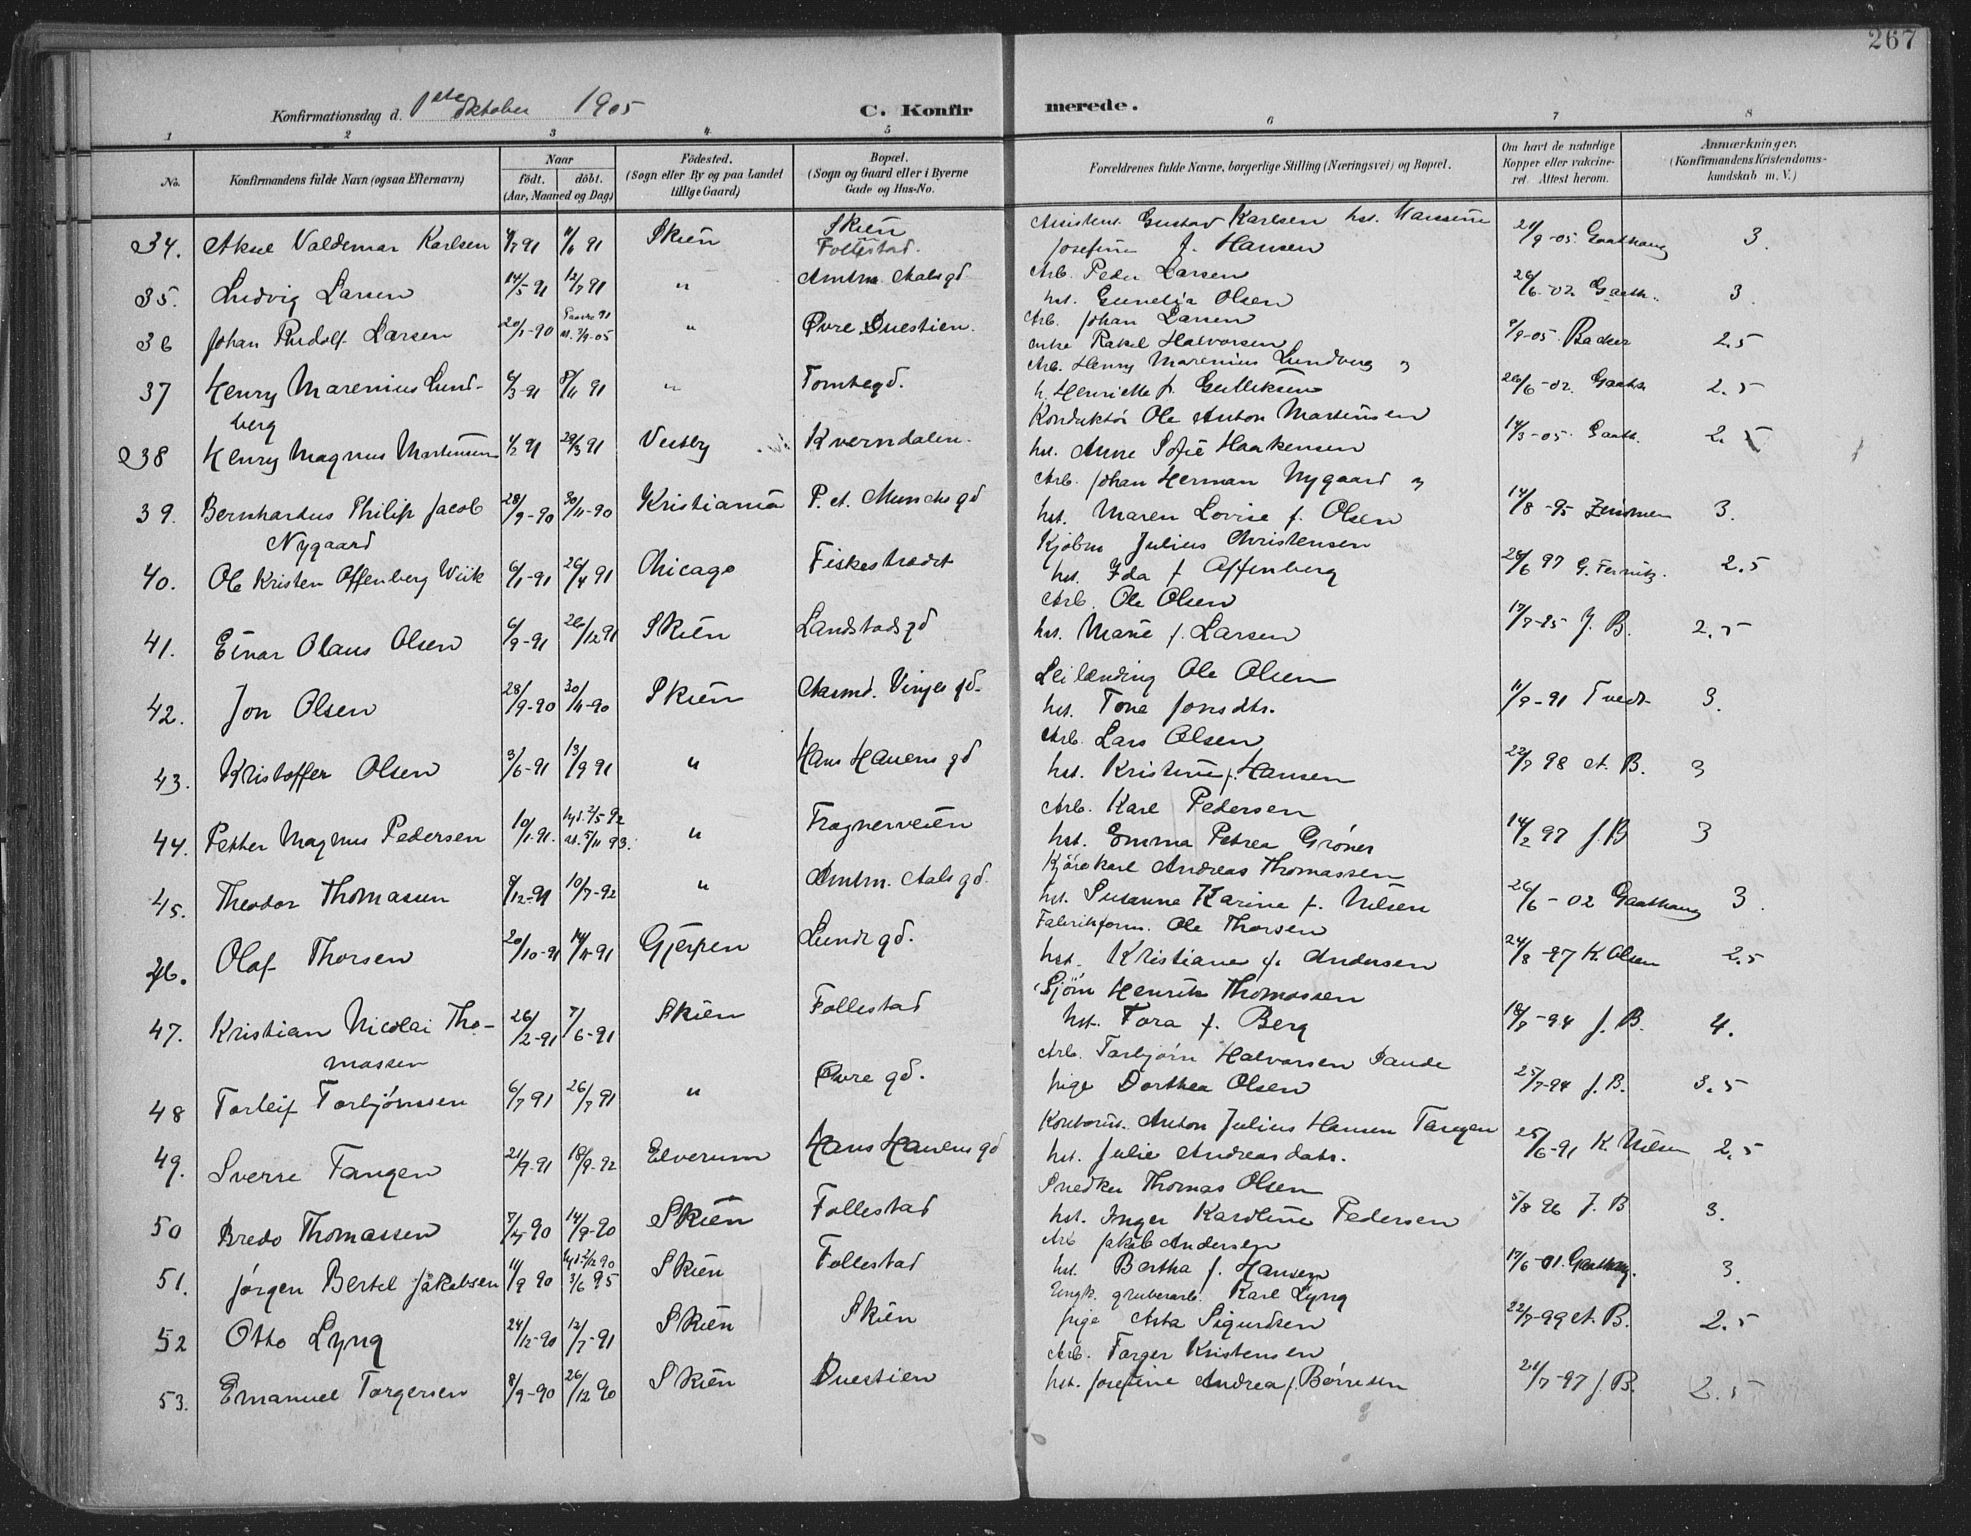 267
Konfirmationsdag d. 1ste Oktober 1905 C. Konfirmerede.
1 2 3 4 5 6 7 8
No. Konfirmandens fulde Navn (ogsaa Efternavn) Naar født. døbt. (Aar, Maaned og Dag) Fødested. (Sogn eller By og paa Landet tillige Gaard) Bopæl. (Sogn og Gaard eller i Byerne Gade og Hus-No. Forældrenes fulde Navne, borgerlige Stilling (Næringsvei) og Bopæl. Om havt de naturlige Kopper eller vakcineret. Attest herom. Anmærkninger. (Konfirmandens Kristendomskundskab m. V.)
34. Aksel Valdemar Karlsen 91 91 Skien Skien Follestad. Assistent. Gustav Karlsen hst.
Josefine f. Hansen 21/9-05. Gaathaug 3.
35. Ludvig Larsen 14/5-91 12/7 91 " Amtm. Aalsgd. Arb. Peder Larsen
hst. Olsen 26/6-02 Gaath. 3.
36 Johan Rudolf Larsen 20/1-90 Øvre Duestien. Arb. Johan Larsen
enke Rakel Halvorsen 9/9-05 Backer 2.5
37 Henry Marenius Lund-
berg 6/3-91 8/11 91 " Tomtegd. Arb. Henry Marenius Lundberg og
h. Henriette f. Gulliksen 26/6-02. Gaath 2.5
238 Henry Magnus Martinsen 91 29/3 91 Vestby Kverndalen. Konduktør Ole Anton Martinsen
hst. Anne Sofie Haakensen 14/3-05. Gaath. 2.5
39. Bernhardus Philip Jacob
Nygaard 28/9-90 30/11-90 Kristiania P. A. Munchsgd Arb. Johan Herman Nygaard og
hst. Maren Lovise f. Olsen 14/8-95 3.
40. Ole Kristen Offenberg Wiik 6/1-91 26/4 91 Chicago Fiskestrædet Kjøbm Julius Christensen
hst. Ida f Offenberg 28/6 97 2.5
41. Einar Olaus Olsen 6/9-91 26/12 91 Skien Landstadsgd Arb. Ole Olsen
hst. Marie f. Larsen 17/7-95 J. B. 2.5
42. Jon Olsen 28/9-90 30/11-90 Skien Aasmd. Vinjesgd. Leilænding Ole Olsen
hst. Tone Jonsdtr. 11/9-91 Tvedt 3.
43. Kristoffer Olsen 3/6-91 13/9 91 " Hans Hauensgd Arb. Lars Olsen
hst. Kristine f. Hansen 22/7 98 A. B. 3
44. Petter Magnus Pedersen 10/1-91. hjd. 2/5 92
st. 5/11 93. " Frognerveien Arb. Karl Pedersen
hst. Emma Petrea Grøner 14/2 97 J. B 3
45. Theodor Thomassen 9/12-91 10/7-92 " Amtm. Aalsgd. Kjørekarl Andreas Thomassen
hst. Susanne Karine f. Nilsen 26/6-02 Gaathaug 3.
46. Olaf Thorsen 20/10-91 14/11-91 Gjerpen Lundegd. Fabrikform. Ole Thorsen
hst. Kristiane f. Andersen 24/8-97 K. Olsen 2.5
47. Kristian Nicolai Tho-
massen 26/2-91 7/6-91 Skien Follestad Sjøm Henrik Thomassen
hst. Tora f. Berg -94 J. B. 4.
48 Torleif Torbjørnsen 6/7 91 26/7 91 " Øvre gd. Arb. Torbjørn Halvorsen Sande
pige Dorthea Olsen 25/7-94 J. B. 3.5
49. Sverre Tangen 21/9-91 18/9-92 Elverum Hans Hauensgd Kontorist. Anton Julius Hansen Tangen
hst. Julie Andreasdatr. 25/6-91 K. Nilsen 2.5
50 Bredo Thomassen 7/4-90 14/9-90 Skien Follestad Snedker Thomas Olsen
hst. Inger Karoline Pedersen 5/8 96 J. B 3.
51. Jørgen Bertel Jakobsen 11/9 90 hjd. 2/12 90
3/6 95 Skien Follestad Arb Jakob Andersen
hst. Bertha f. Hansen 17/6-01. Gaathaug. 3.
52 Otto Lyng 24/12-90 12/7-91 Skien Skien Ungk. gruberarb. Karl Lyng
pige Asta Sigurdsen 22/7-99 A. B. 2.5
53. Emanuel Torgersen 8/9-90 26/12 90 Skien Duestien Arb. Torger Kristensen
hst. Josefine Andrea f. Børresen 21/7-97 J. B. 2.5